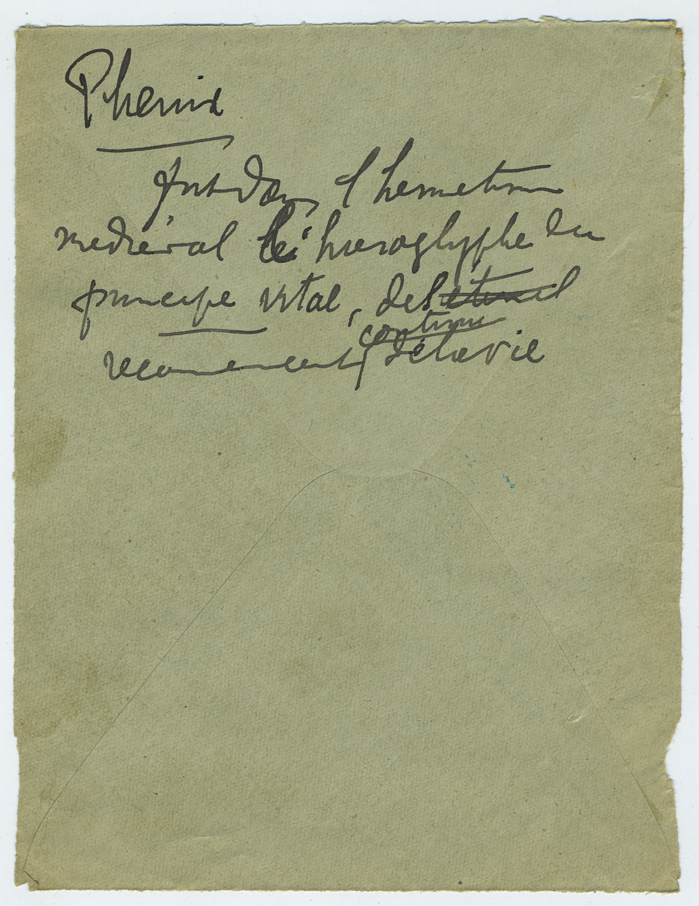 Phenix
fut dans l'hermetisme
medieval le hieroglyphe du
principe vital, de l'eternel
continu
recommencement de la vie